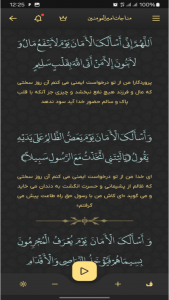 12:25
مناجات امیرالمومنین
اَللّهُمَّ اِنّی اَسْأَلُکَ الْأَمانَ یَوْمَ لا یَنْفَعُ مالٌ وَ
لا بَنُونَ إِلاّ مَنْ أَتَی اللهَ بِقَلْبٍ سَلیمٍ
پروردگارا من از تو درخواست ایمنی می کنم آن روز سختی
که مال و فرزند هیچ نفع نبخشد و چیزی جز آنکه با قلب
پاک و سالم حضور خدا آید سود ندهد
وَ أَسْأَلُکَ الْأَمانَ یَوْمَ یَعَضُّ الظّالِمُ عَلی یَدَیْهِ
یَقُولُ یا لَیْتَنِی اتَّخَذْتُ مَعَ الرَّسُولِ سَبیلاً
ای خدا من از تو درخواست ایمنی می کنم آن روز سختی
که ظالم از پشیمانی و حسرت انگشت به دندان می خاید
و می گوید ای کاش من با رسول حق راه طاعت پیش می
گرفتم
وَ أَسْأَلُکَ الْأَمانَ یَوْمَ یُعْرَفُ الْمُجْرِمُونَ
بِسیماهُمْ فَیُؤْخَذُ بِالنَّواصی وَ الْأَقْدامِ